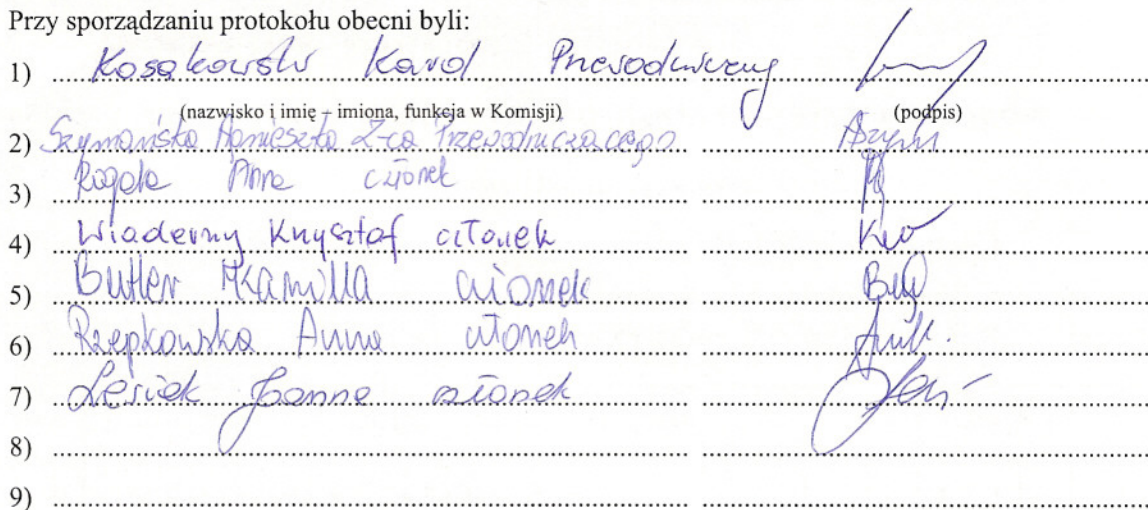 Przy sporządzaniu protokołu obecni byli:
1) Kosakowski Karol Przewodniczący
(nazwisko i imię – imiona, funkcja w Komisji) (podpis)
2) Szymańska Agnieszka Z-ca Przewodniczącego
3) Rogala Anna członek
4) Wiaderny Krzysztof członek
5) Butler Kamilla członek
6) Rzepkowska Anna członek
7) Lesiak Joanna członek
8)
9)